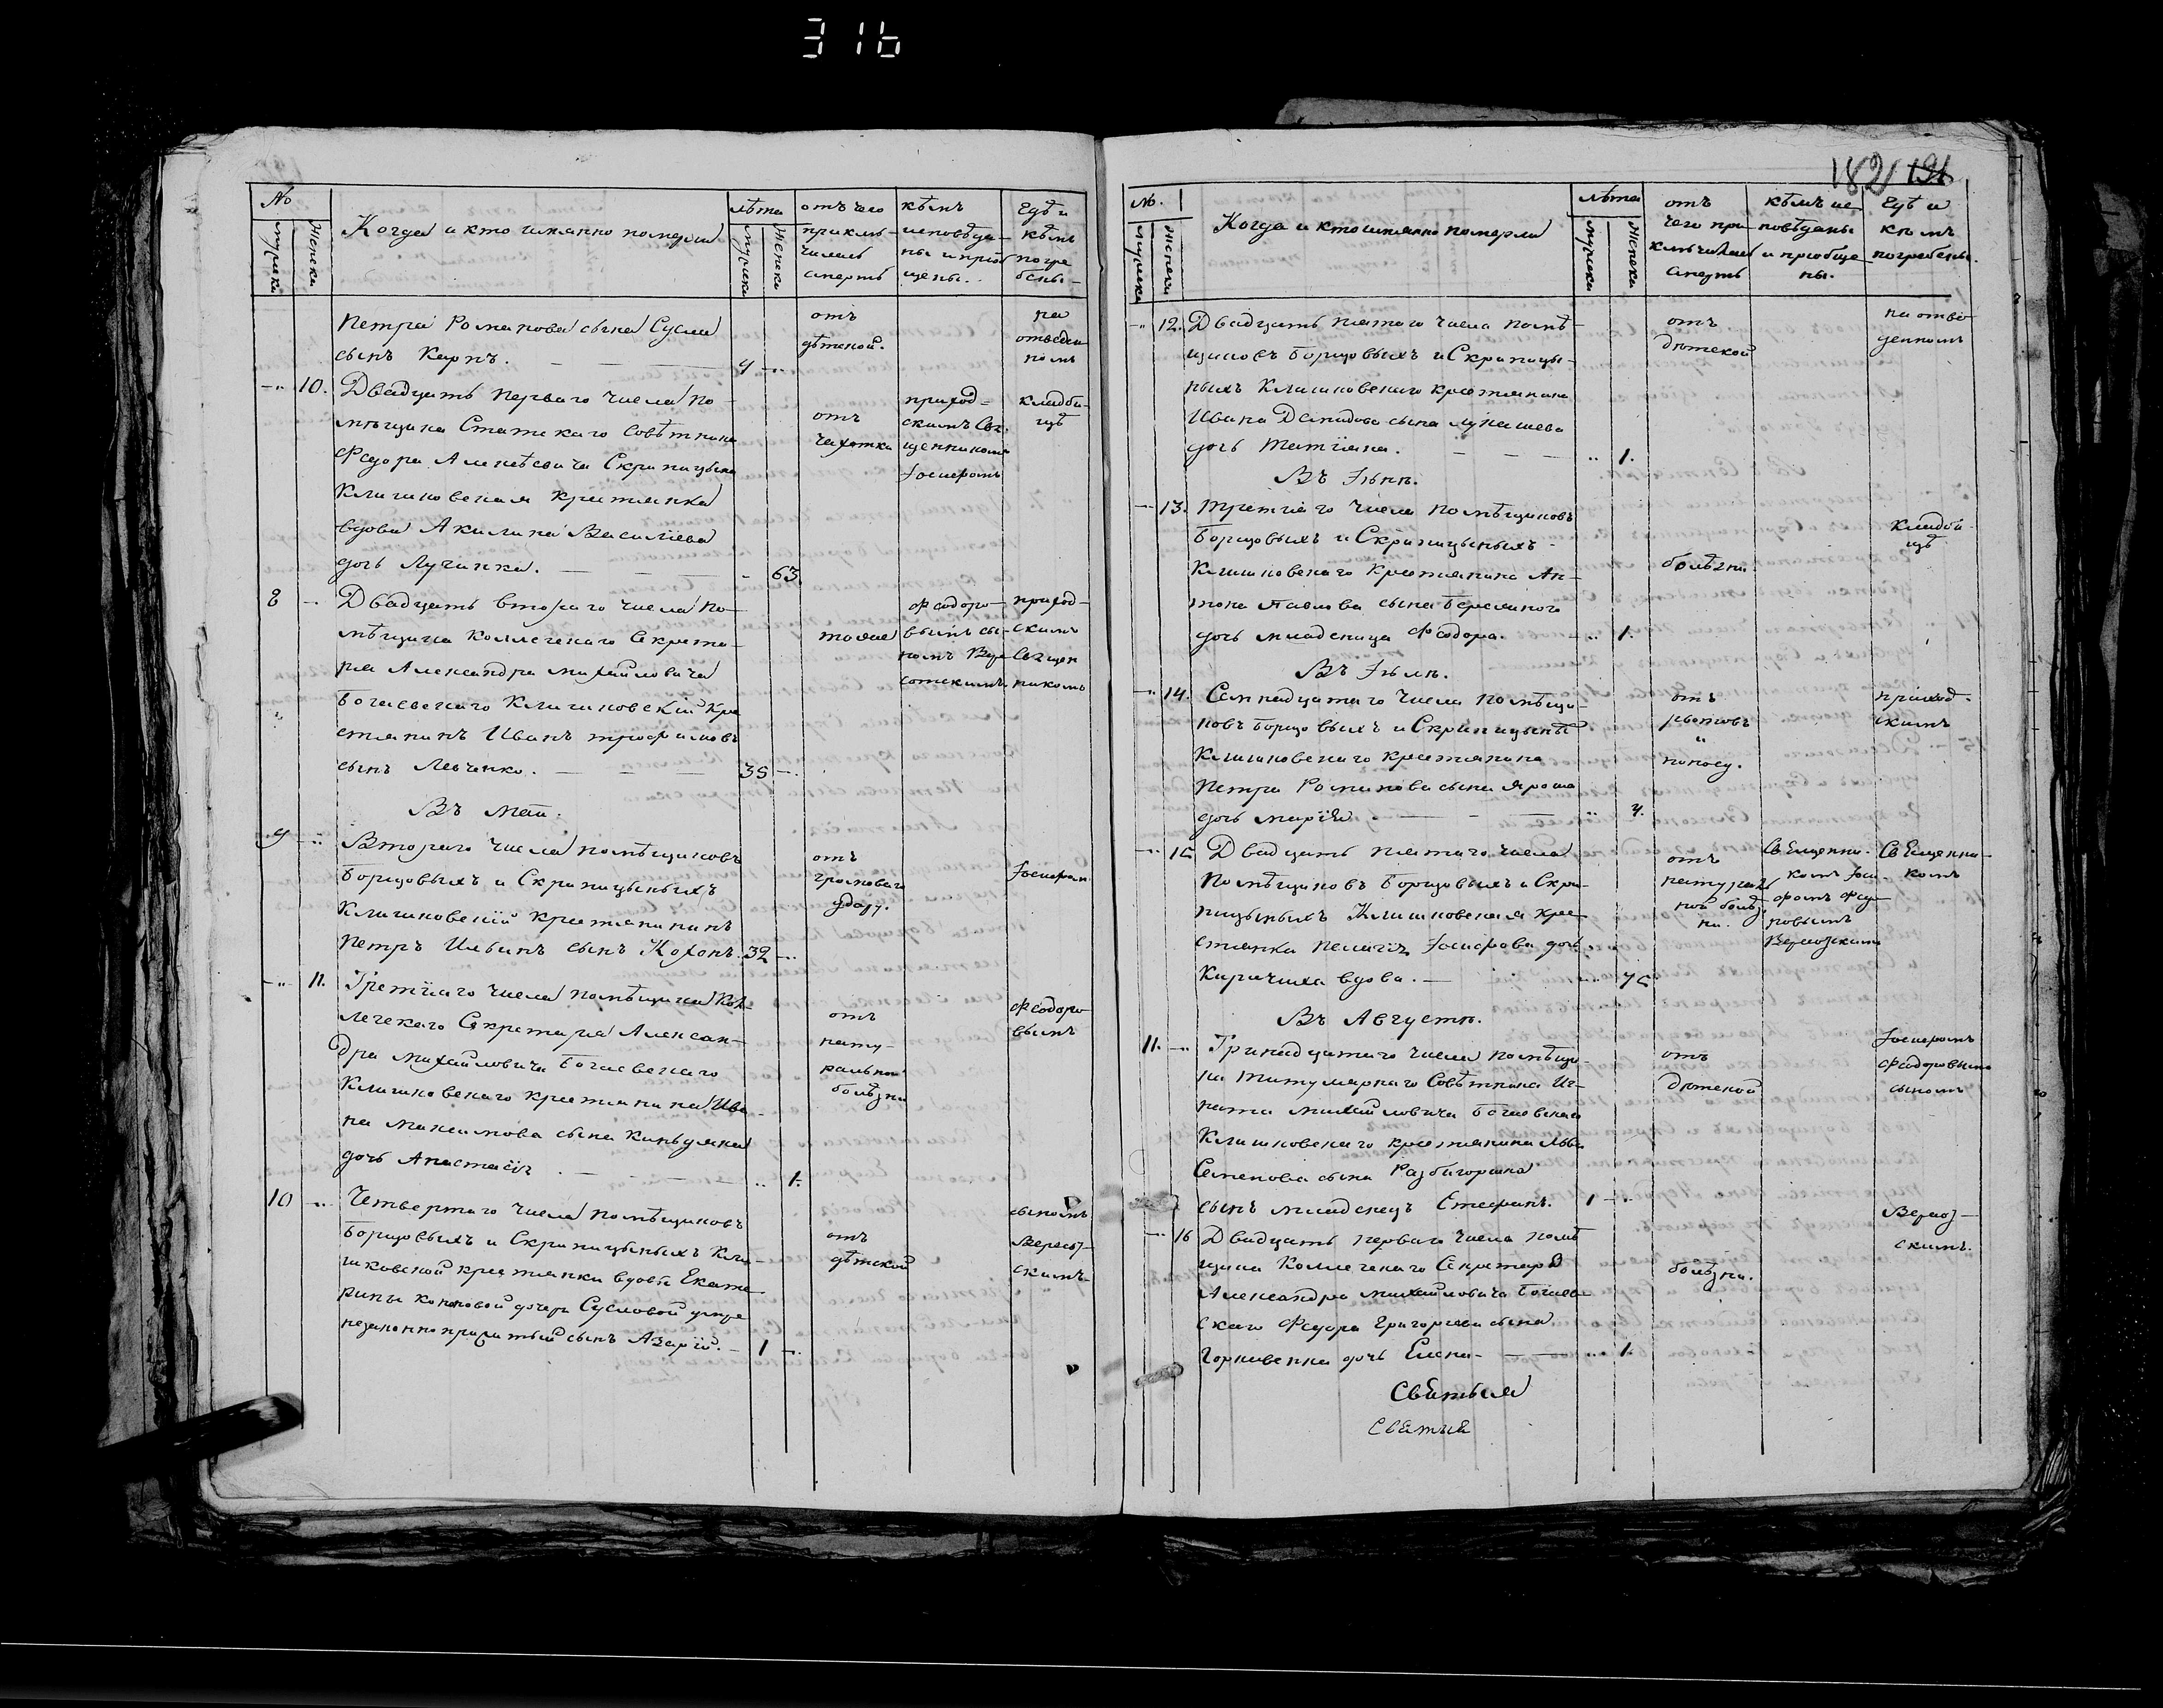 316
№
мужеска
Женска
Когда и кто имянно померли
лѣта
мужеска
Женска
отъ чего
приклю-
чилась
смерть
кѣмъ
исповѣда-
ны и приоб
щены.
Гдѣ и
кѣмъ
погре
бены-
Петра Романова сына Сусла
сынъ Карпъ. 4
отъ
дѣтской.
на
отведен
номъ
10. Двадцать перваго числа по-
мѣщика Статскаго Совѣтника
Федора Алексѣевича Скрипицына
Клишковская крестьянка
вдова Акилина Василіева
дочь Лучинка. 63.
отъ
чахотки
приход-
скимъ Свя-
щенникомъ
Іосифомъ
кладби-
щѣ
8 Двадцать втораго числа по-
мѣщика Коллегскаго Секрета-
ря Александра Михайловича
Богаевскаго Клишковскій кре
стьянинъ Иванъ Трофимовъ
сынъ Левченко. 35
тояже
Феодоро-
вымъ сы-
номъ
приход-
скимъ
Священ
никомъ
Въ Маи.
9 Втораго числа помѣщиковъ
Борщовыхъ и Скрипицыныхъ
Клишковскій крестьянинъ
Петръ Ильинъ сынъ Кохонъ. 32
отъ
громоваго
удару.
Іосифом
11. Третіяго числа помѣщика Кол-
легскаго Секретаря Алексан-
дра Михайловича Богаевскаго
Клишковскаго крестьянина Ива-
на Максимова сына
дочь Анастасія 1.
отъ
нату-
ральной
болѣзни
Феодоро-
вымъ
10 Четвертаго числа помѣщиковъ
Борщовыхъ и Скрипицыныхъ Кли-
шковской крестьянки вдовы Екате
рины Кононовой дочери Сусловой
незаконноприжитый сынъ Азарій. 1
отъ
дѣтской
сыномъ
скимъ
182 191
№.
мужеска
женска
Когда и кто имянно померли
лѣта
мужеска
Женска
отъ
чего при-
ключилась
смерть
кѣмъ ис
повѣданы
и приобще
ны.
Гдѣ и
кѣмъ
погребены.
12. Двадцать пятаго числа помѣ-
щиковъ Борщовыхъ и Скрипицы-
ныхъ Клишковскаго крестьянина
Ивана Демидова сына Лукашева
дочь Татіяна. 1.
отъ
дѣтской
на отве-
денномъ
Въ Іюнѣ.
13. Третіяго числа помѣщиковъ
Борщовыхъ и Скрипицыныхъ-
Клишковскаго крестьянина Ан-
тона Павлова сына
дочь младеница Феодора. 1.
болѣзни.
кладби-
щѣ
Въ Іюлѣ.
14. Семнадцатаго числа помѣщи-
ковъ Борщовыхъ и Скрипицыныхъ
Клишковскаго крестьянина
Петра Романова сына Яроша
дочь Марія 4.
отъ
рвотовъ
и
поносу.
приход-
скимъ
15 Двадцать пятаго числа
Помѣщиковъ Борщовыхъ и Скри-
пицыныхъ Клишковская кре
стьянка Пелагія Іосифова дочь
Киричиха вдова. 75
отъ
натураль
ной болѣз
ни.
Священни-
комъ Іоси-
фомъ
Священни-
комъ
Въ Августѣ.
11. Тринадцатаго числа помѣщи-
ка Титулярнаго Совѣтника Иг-
ната Михайловича Богаевскаго
Клишковскаго крестьянина Льва
Семенова сына
сынъ младенецъ Стефанъ. 1
отъ
дѣтской
Іосифомъ
Феодоровымъ
сыномъ
16 Двадцать перваго числа помѣ
щика Коллегскаго Секретаря
Александра Михайловича Богаев-
скаго Федора Григорьева сына
дочь Елена- 1.
болѣзни.
скимъ.
Святыя
Святыя